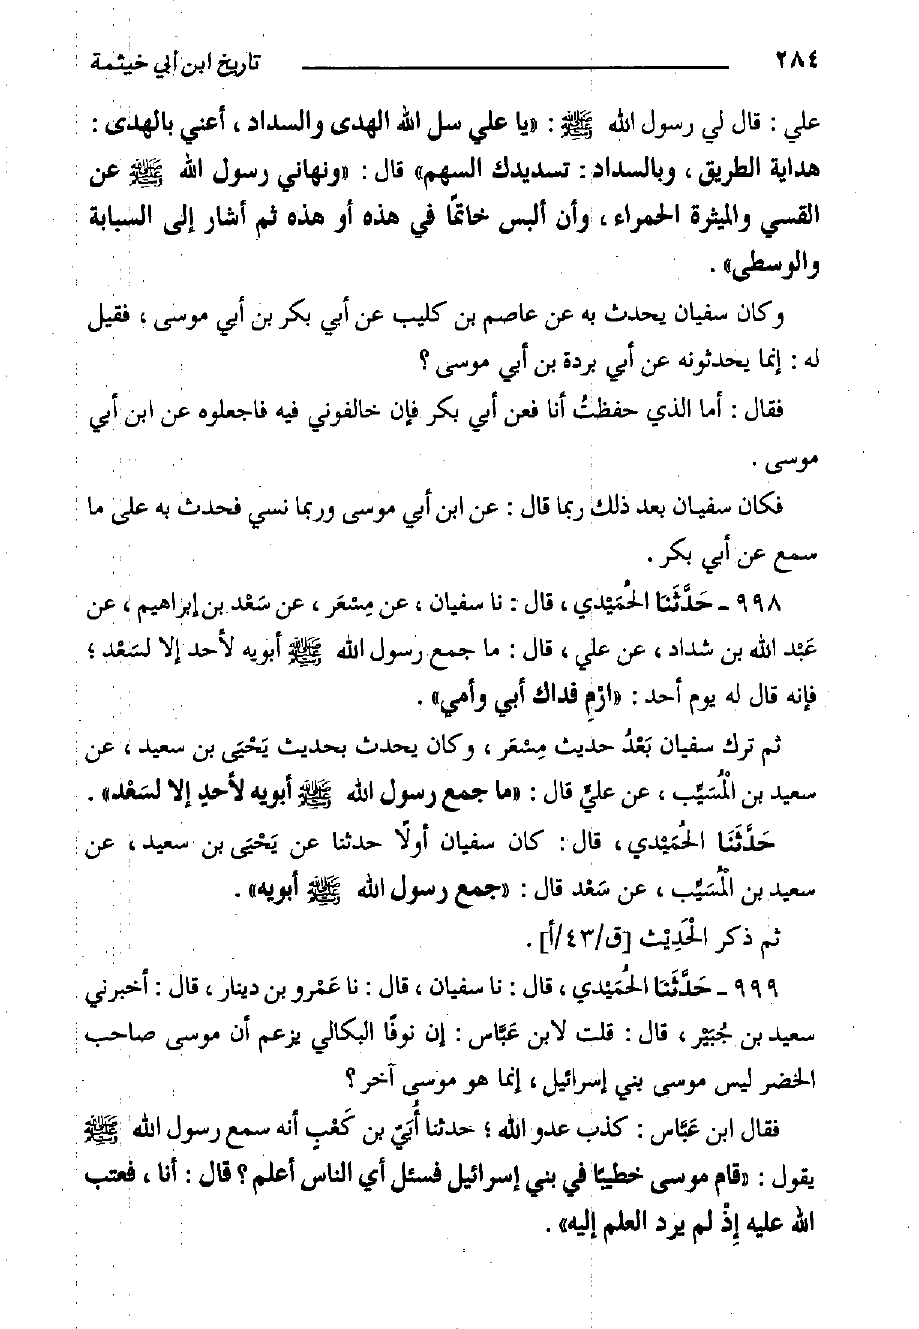 ٢٨٤ تاريخ ابن أبي خيثمة
علي : قال لي رسول الله ﷺ : «يا علي سل الله الهدى والسداد ، أعني بالهدى :
هداية الطريق ، وبالسداد : تسديدك السهم» قال : «ونهاني رسول الله ﷺ عن
القسي والميثرة الحمراء ، وأن ألبس خاتمًا في هذه أو هذه ثم أشار إلى السبابة
والوسطى» .
وكان سفيان يحدث به عن عاصم بن كليب عن أبي بكر بن أبي موسى ، فقيل
له : إنما يحدثونه عن أبي بردة بن أبي موسى ؟
فقال : أما الذي حفظتُ أنا فعن أبي بكر فإن خالفوني فيه فاجعلوه عن ابن أبي
موسى .
فكان سفيان بعد ذلك ربما قال : عن ابن أبي موسى وربما نسي فحدث به على ما
سمع عن أبي بكر .
٩٩٨ - حَدَّثَنا الحُمَيْدي ، قال : نا سفيان ، عن مِسْعَر ، عن سَعْد بن إبراهيم ، عن
عَبْد الله بن شداد ، عن علي ، قال : ما جمع رسول الله ﷺ أبويه لأحد إلا لسَعْد ؛
فإنه قال له يوم أحد : «ارْمِ فداك أبي وأمي» .
ثم ترك سفيان بَعْدُ حديث مِسْعَر ، وكان يحدث بحديث يَحْيَى بن سعيد ، عن
سعيد بن الْمُسَيِّب ، عن عليٍّ قال : «ما جمع رسول الله ﷺ أبويه لأحدٍ إلا لسَعْد» .
حَدَّثَنَا الحُمَيْدي ، قال : كان سفيان أولًا حدثنا عن يَحْيَى بن سعيد ، عن
سعيد بن الْمُسَيِّب ، عن سَعْد قال : «جمع رسول الله ﷺ أبويه» .
ثم ذكر الْحَدِيْث [ق/٤٣/أ] .
٩٩٩ - حَدَّثَنَا الحُمَيْدي ، قال : نا سفيان ، قال : نا عَمْرو بن دينار ، قال : أخبرني
سعيد بن جُبَيْر ، قال : قلت لابن عَبَّاس : إن نوفًا البكالي يزعم أن موسى صاحب
الخضر ليس موسى بني إسرائيل ، إنما هو موسى آخر ؟
فقال ابن عَبَّاس : كذب عدو الله ؛ حدثنا أُبَيّ بن كَعْبٍ أنه سمع رسول الله ﷺ
يقول : «قام موسى خطيبًا في بني إسرائيل فسئل أي الناس أعلم ؟ قال : أنا ، فعتب
الله عليه إِذْ لم يرد العلم إليه» .